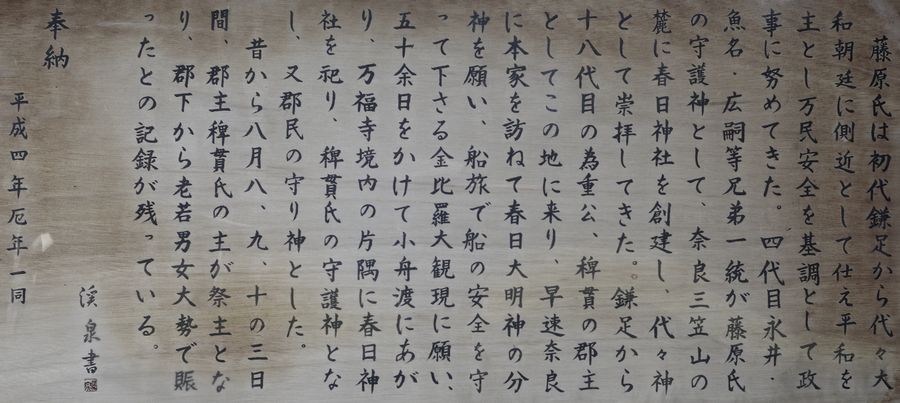 藤原氏は初代鎌足から代々大
和朝廷に側近として仕え平和を
主とし万民安全を基調として政
事に努めてきた。四代目永井・
魚名・広嗣等兄弟一統が藤原氏
の守護神として、奈良三笠山の
麓に春日神社を創建し、代々神
として崇拝してきた。鎌足から
十八代目の為重公、稗貫の郡主
としてこの地に来り、早速奈良
に本家を訪ねて春日大明神の分
神を願い、船旅で船の安全を守
って下さる金比羅大観現に願い、
五十余日をかけて小舟渡にあが
り、万福寺境内の片隅に春日神
社を祀り、稗貫氏の守護神とな
し、又郡民の守り神とした。
昔から八月八、九、十の三日
間、郡主稗貫氏の主が祭主とな
り、郡下から老若男女大勢で賑
ったとの記録が残っている。
溪泉書
奉納
平成四年厄年一同